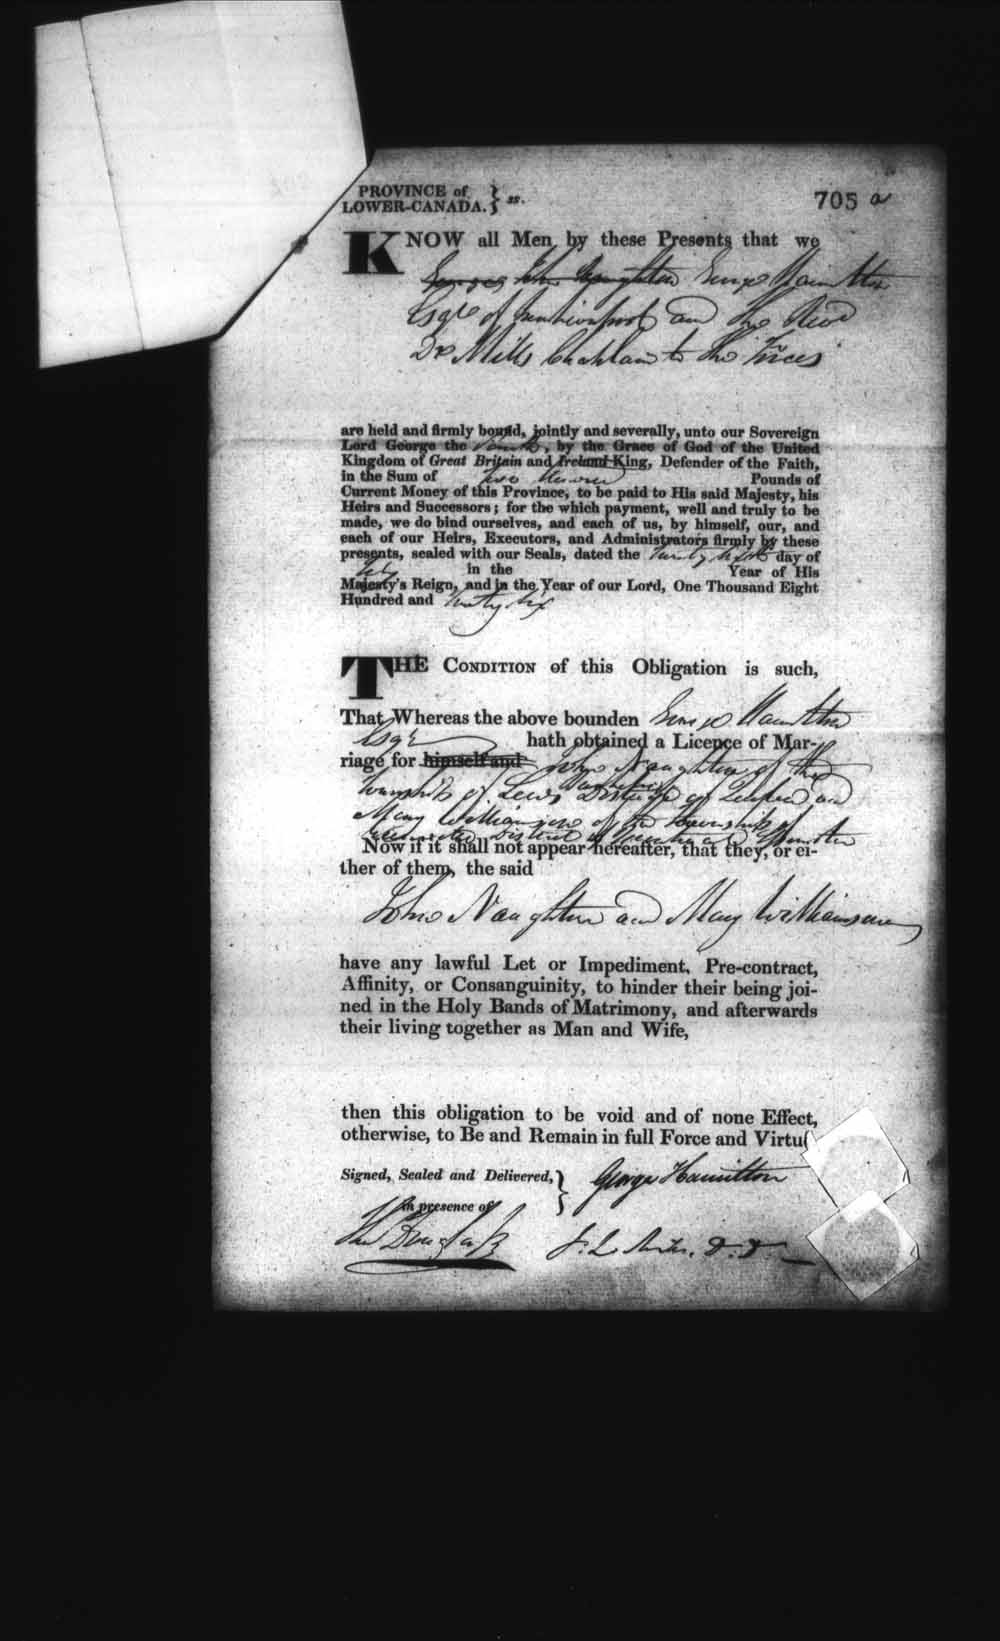 PROVINCE of
LOWER-CANADA. } ss.
705 a
KNOW all Men by these Presents that we
John Naughton George Hamilton
Esqre of and The Revd
Dr Mills Chaplain to the Forces
are held and firmly bound, jointly and severally, unto our Sovereign
Lord George the Fourth, by the Grace of God of the United
Kingdom of Great Britain and Ireland King, Defender of the Faith,
in the Sum of two hundred Pounds of
Current Money of this Province, to be paid to His said Majesty, his
Heirs and Successors; for the which payment, well and truly to be
made, we do bind ourselves, and each of us, by himself, our, and
each of our Heirs, Executors, and Administrators firmly by these
presents, sealed with our Seals, dated the day of
in the Year of His
Majesty's Reign, and in the Year of our Lord, One Thousand Eight
Hundred and twenty six
THE CONDITION of this Obligation is such,
That Whereas the above bounden George Hamilton
Esqr hath obtained a Licence of Mar-
riage for himself and John Naughton of the
Township of District of Quebec and
Mary Williamson of the Township of
District of Spinster
Now if it shall not appear hereafter, that they, or ei-
ther of them, the said
John Naughton and Mary Williamson
have any lawful Let or Impediment, Pre-contract,
Affinity, or Consanguinity, to hinder their being joi-
ned in the Holy Bands of Matrimony, and afterwards
their living together as Man and Wife,
then this obligation to be void and of none Effect,
otherwise, to Be and Remain in full Force and Virtu
Signed, Sealed and Delivered, } George Hamilton
in presence of
Douglass J. L. Mills. D.D